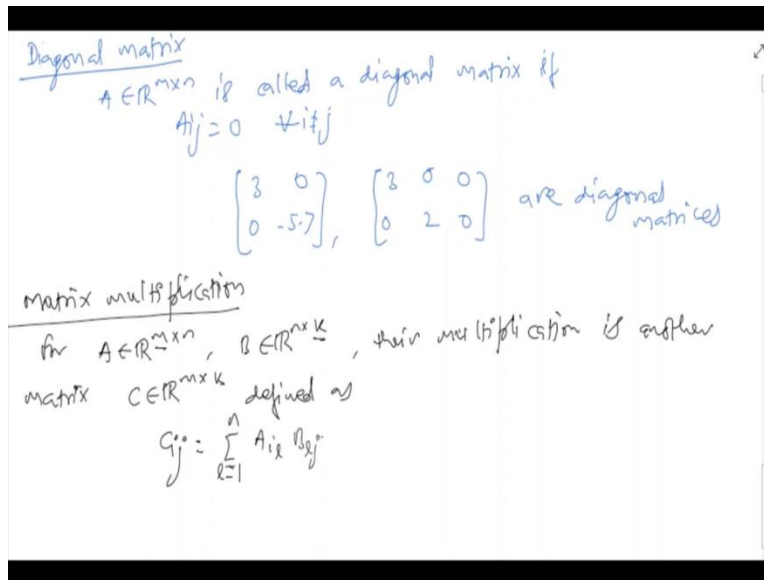 Diagonal matrix
A ∈ ℝ^{m×n} is called a diagonal matrix if
A_{ij} = 0 ∀ i ≠ j
[3 0; 0 -5.7], [3 0 0; 0 2 0] are diagonal matrices
Matrix multiplication
for A ∈ ℝ^{m×n}, B ∈ ℝ^{n×k}, their multiplication is another
matrix C ∈ ℝ^{m×k} defined as
C_{ij} = ∑_{l=1}^{n} A_{il} B_{lj}